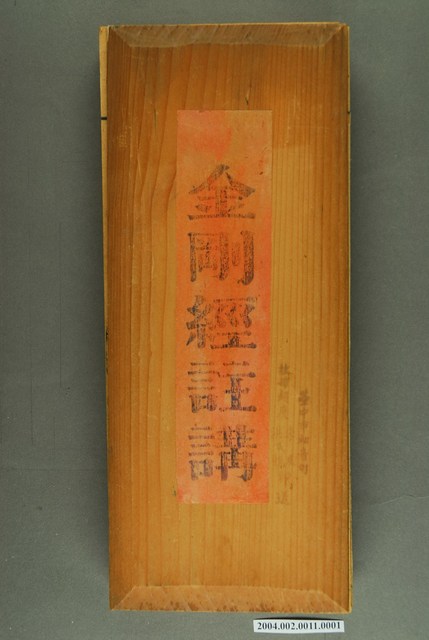 金剛經註講
2004.002.0011.0001